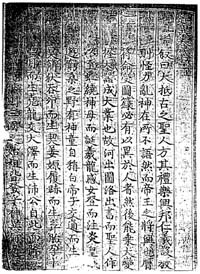 叙曰大抵古之聖人方其禮樂興邦仁義設教
則怪力亂神在所不語然而帝王之將興也膺
符命受圖籙必有以異於人者然後能乘大變
握大器成大業也故河出圖洛出書而聖人作
以至虹繞神母而誕羲龍感女登而注炎皇
娥遊窮桑之野有神童自稱白帝子交通而生
小昊簡狄吞卵而生契姜嫄履跡而生弃胎孕
十四月而生堯龍交大澤而生沛公自此而降